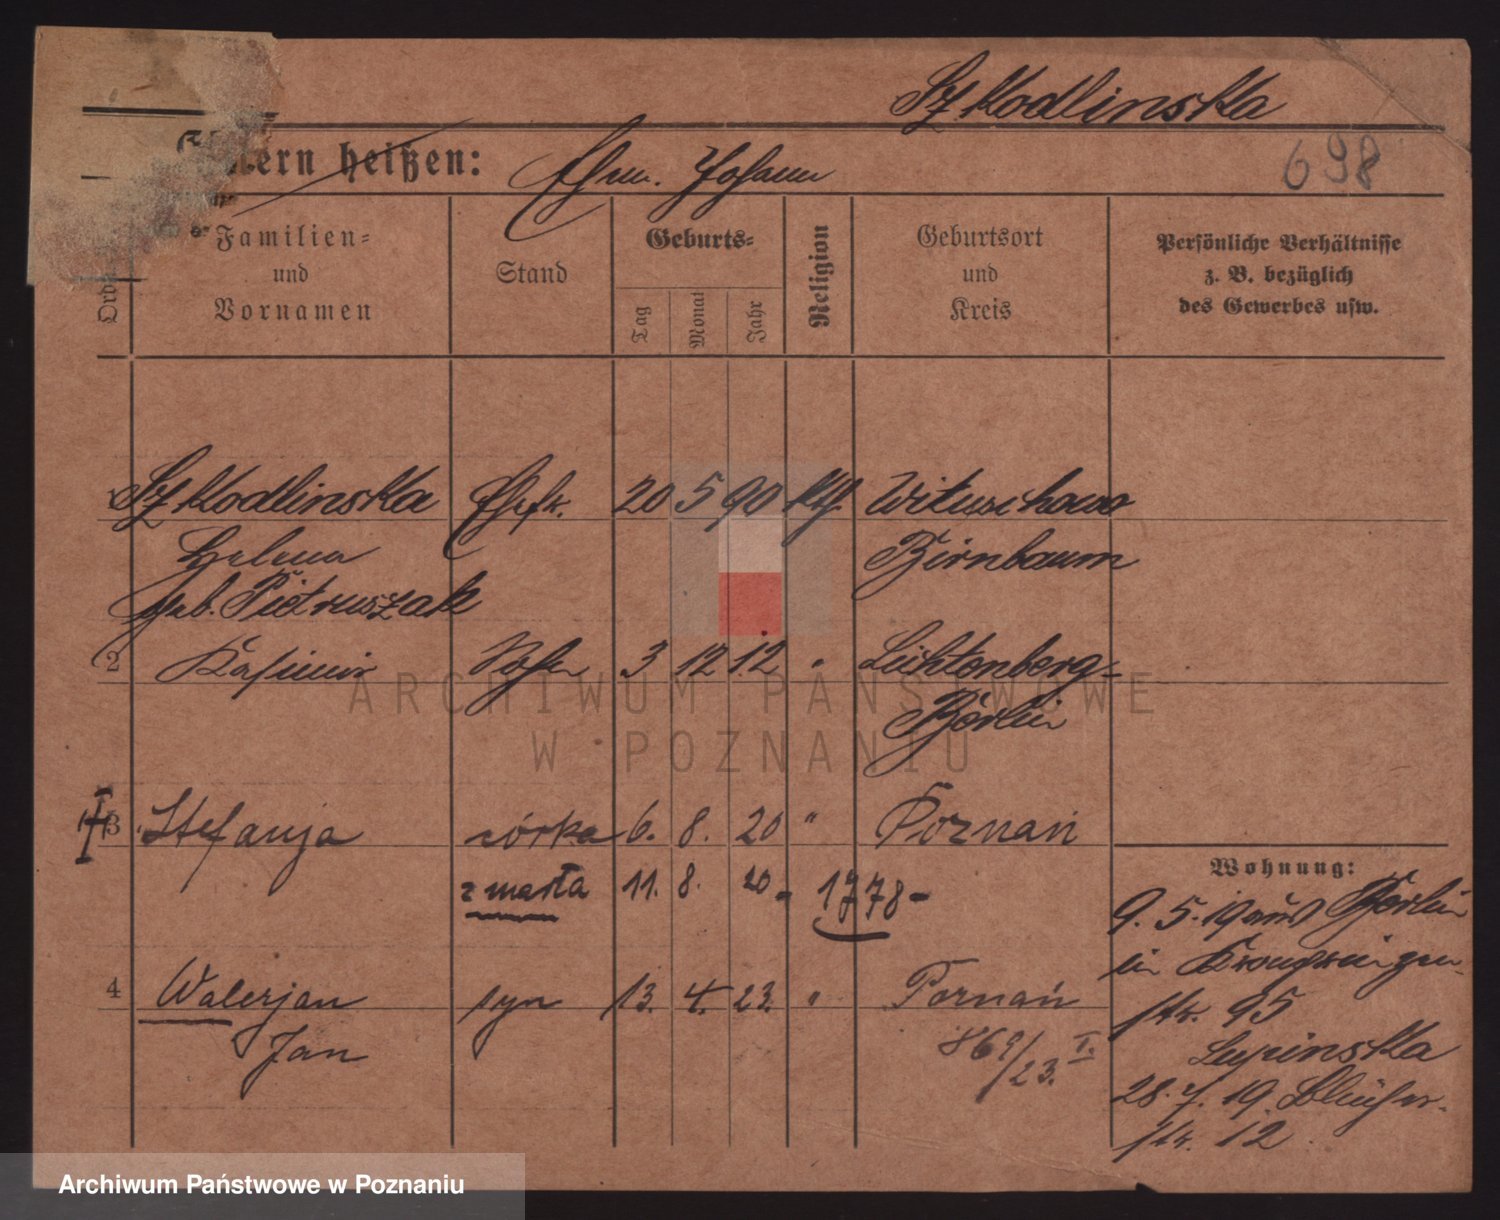 Szkodlinska
ern heißen: Ehm. Johann
698
Ord
Familien=
und
Vornamen
Stand
Geburts=
Tag
Monat
Jahr
Religion
Geburtsort
und
Kreis
Persönliche Verhältnisse
z. B. bezüglich
des Gewerbes usw.
Szkodlinska Ehefr. 20 5 90 kth. Wituchowo
Helena Birnbaum
geb. Pietruszak
2 Kasimir Sohn 3 12 12 " Lichtenberg-
Berlin
3 Stefanja córka 6. 8. 20 " Poznań
zmarła 11. 8. 20 - 1778-
4 Walerjan syn 13. 4. 23. " Poznań
Jan 869/23. I.
Wohnung:
9. 5. 19 aus Berlin
in Kronprinzen
str. 95
28. 7. 19. Blücher-
str. 12
ARCHIWUM PAŃSTWOWE
W POZNANIU
Archiwum Państwowe w Poznaniu